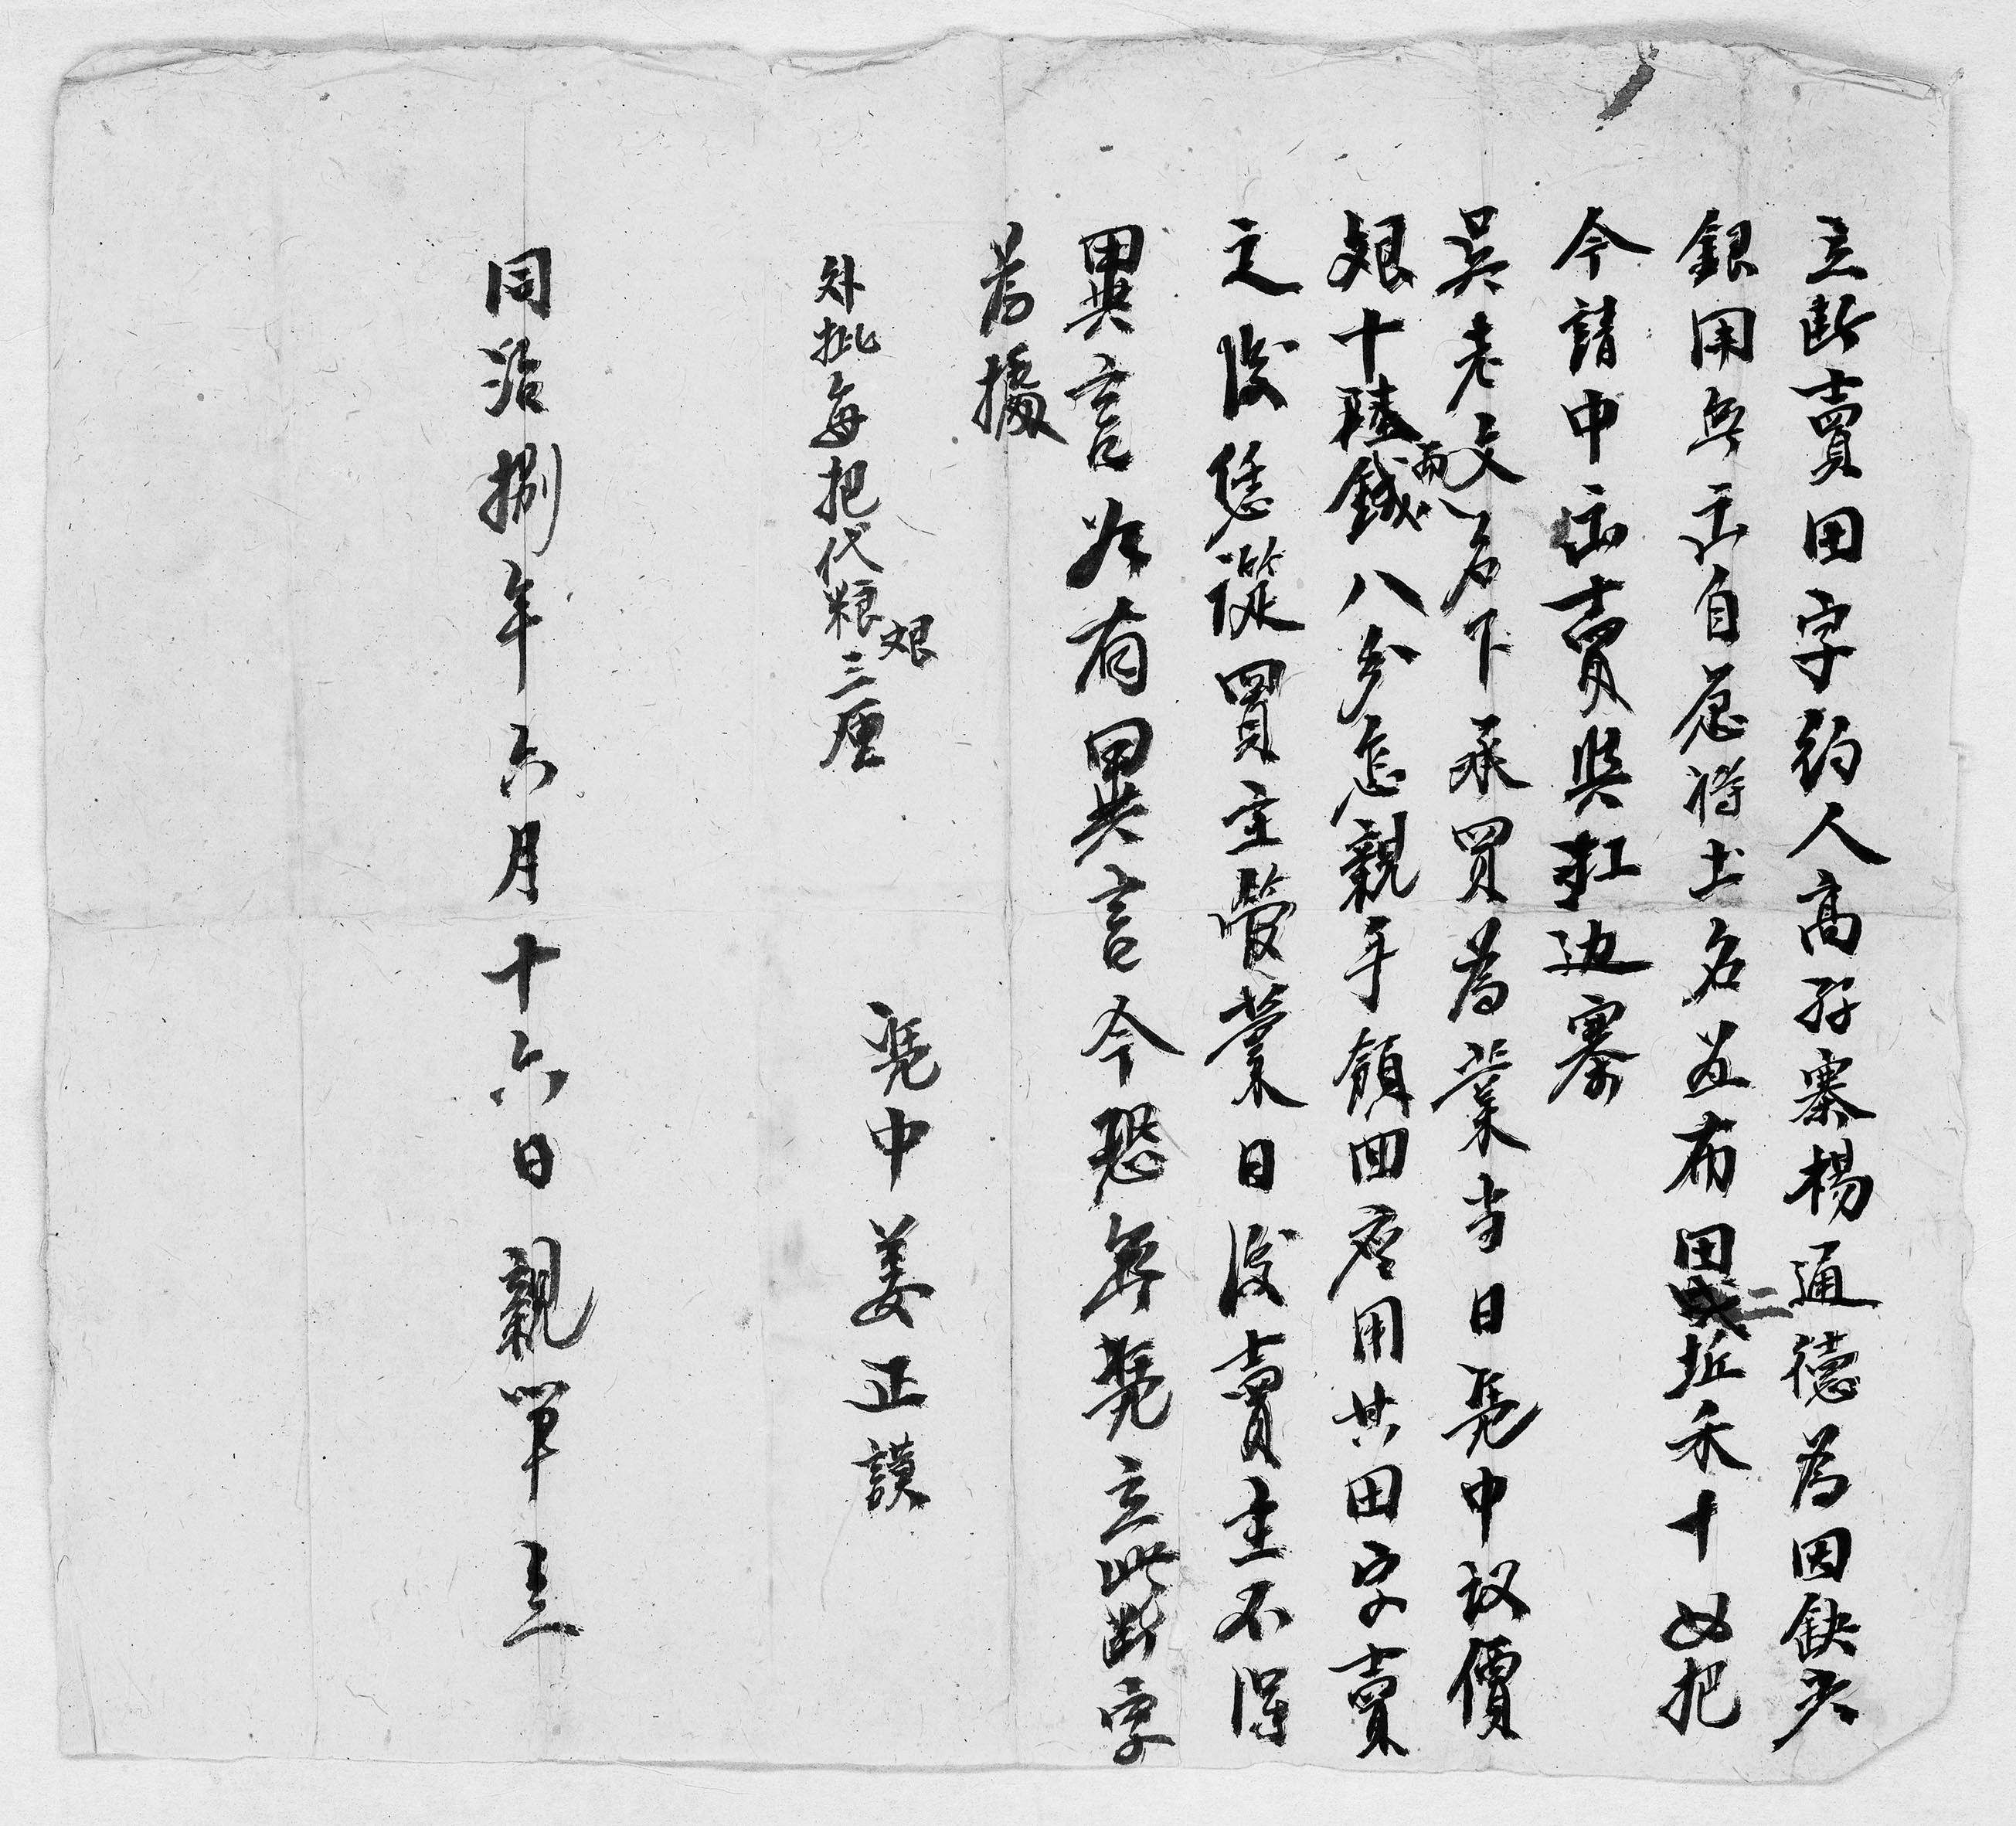 立断賣田字約人高孖寨楊通德為因缺少
銀用無出自愿將土名並布田二坵禾十如把
今請中出賣與杠边寨
吳老文名下承買為業当日凴中议價
艮十陸両錢八分怎親手領回應用其田字賣
之後恁從買主管業日後賣主不得
異言如有異言今恐無凴立此断字
為據
外批每把代粮艮三厘
凴中姜正謨
同治捌年六月十六日親筆立